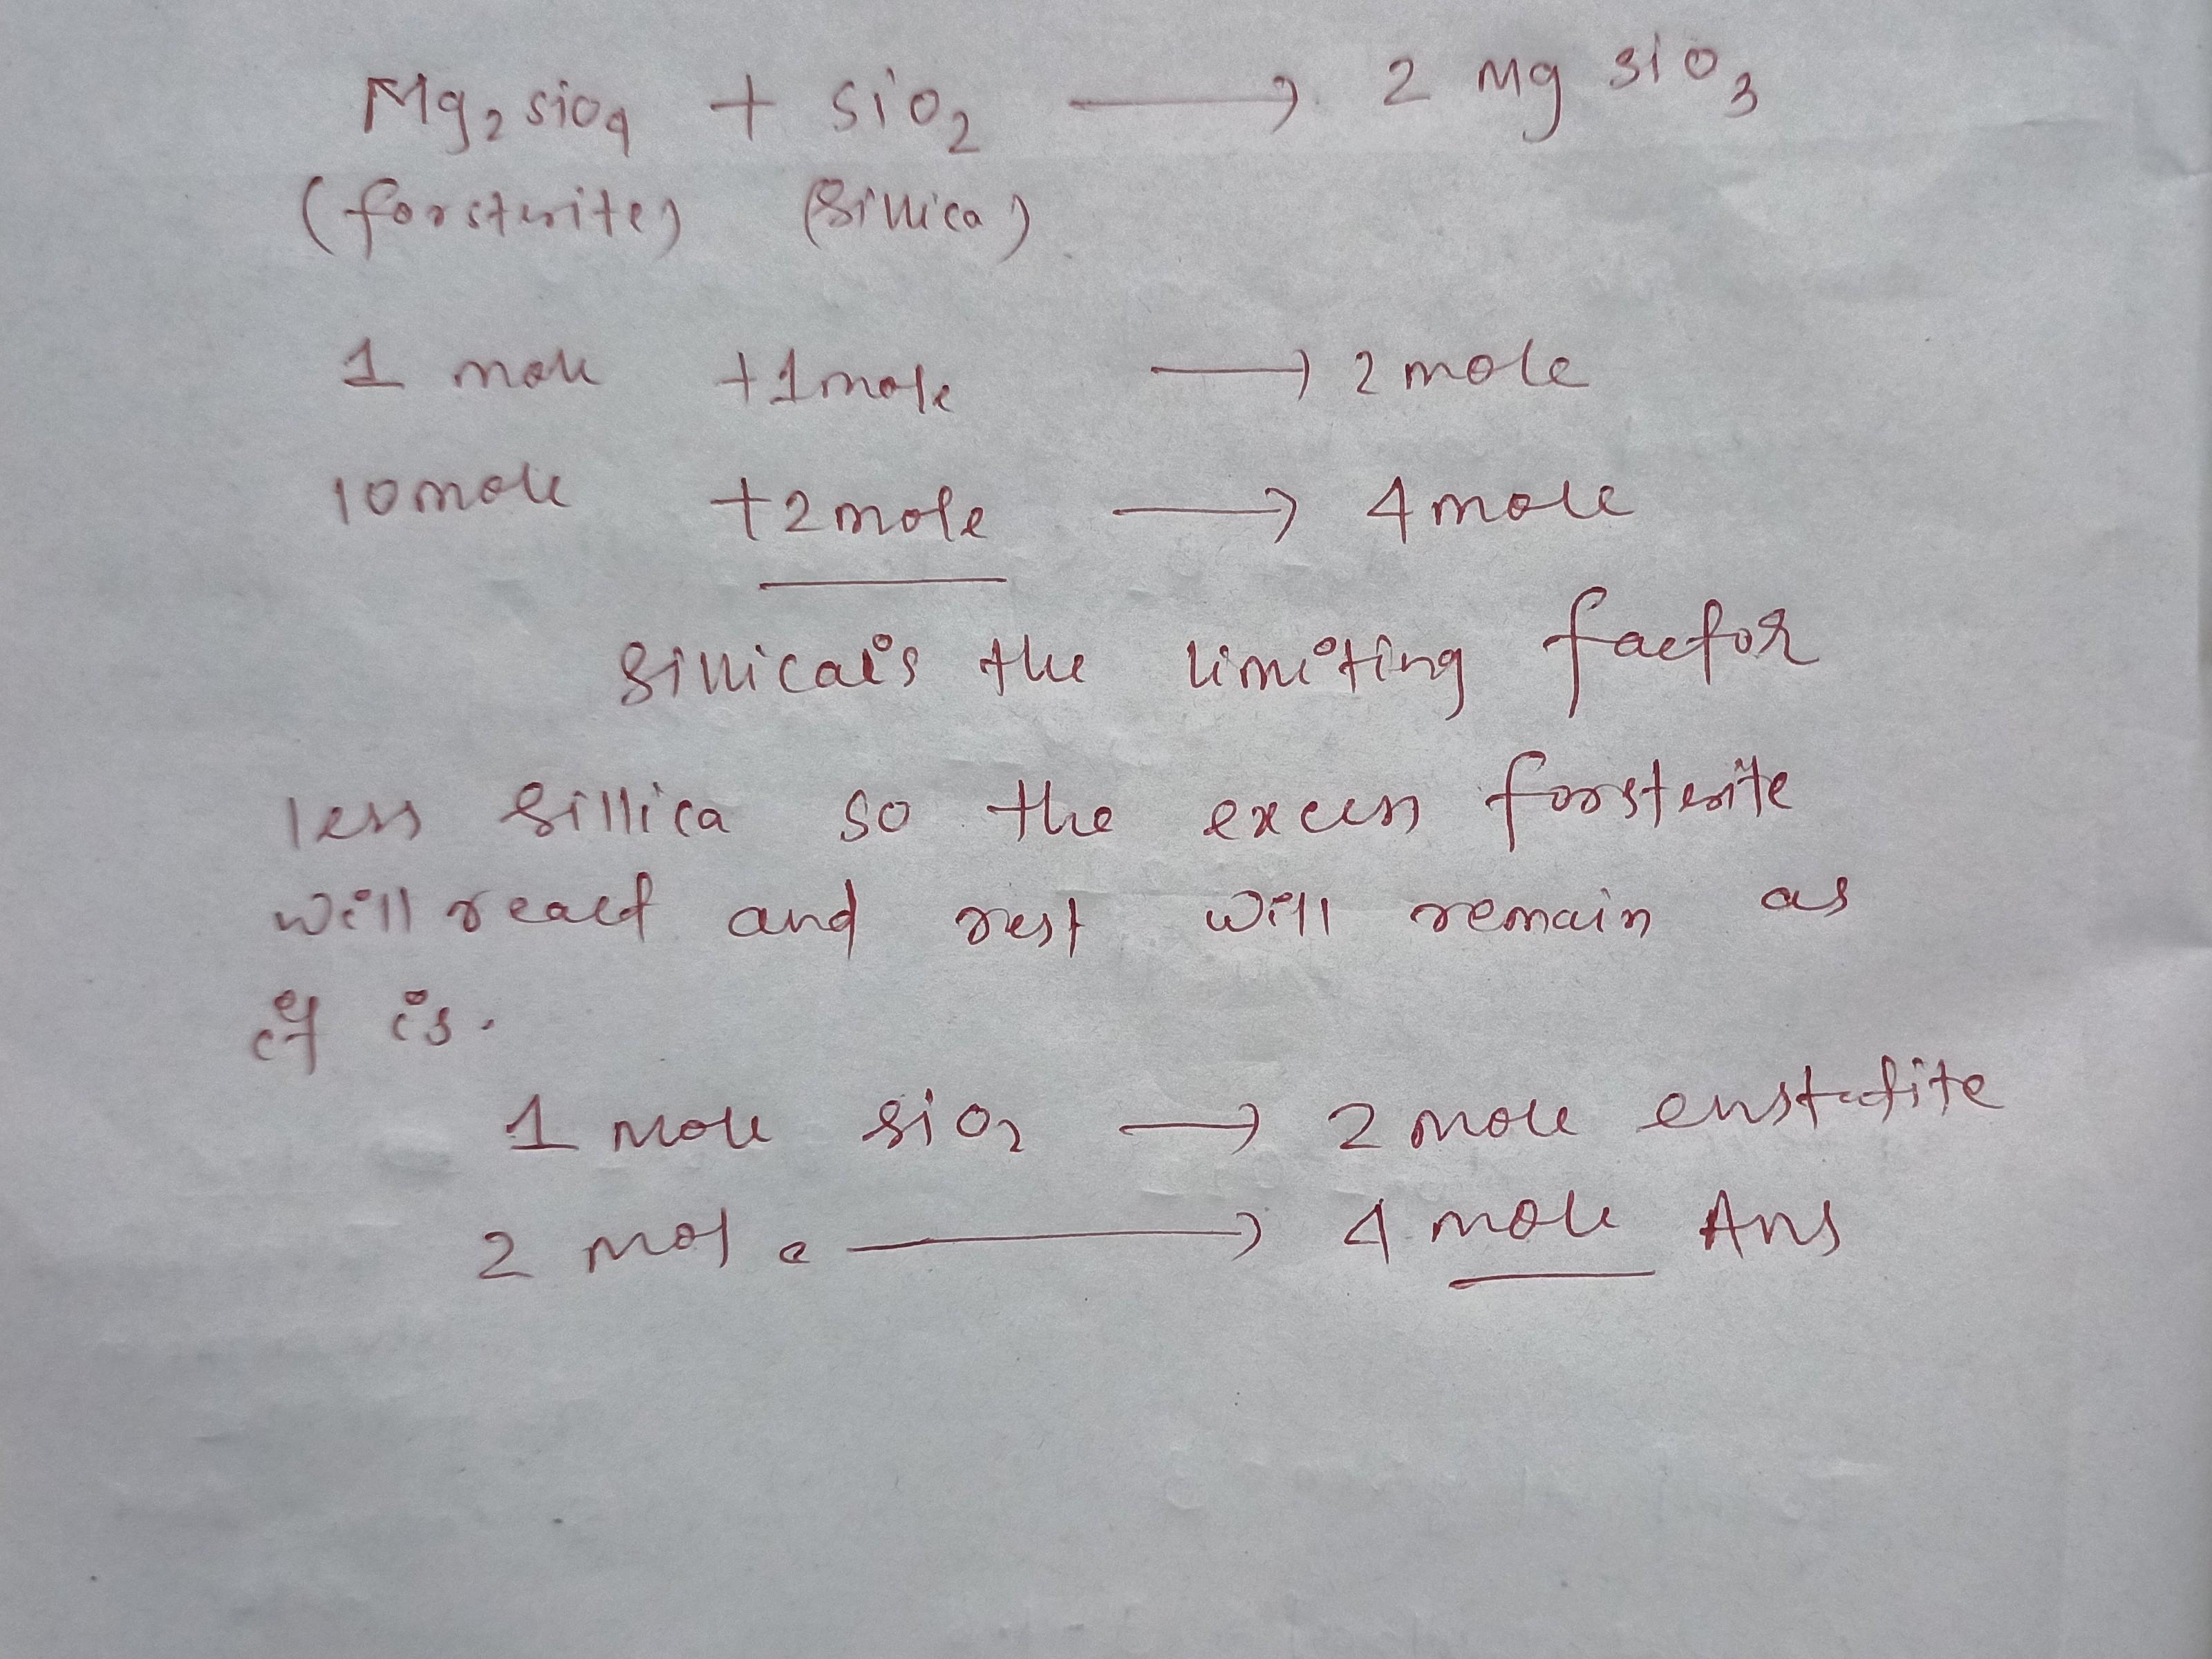 Mg2 sio4 + sio2 → 2 Mg sio3
(forsterite) (Sillica)
1 mole +1mole → 2mole
10mole +2mole → 4mole
Sillica is the limiting factor
less Sillica so the excess forsterite
will react and rest will remain as
it is.
1 mole sio2 → 2 mole enstatite
2 mole → 4 mole Ans